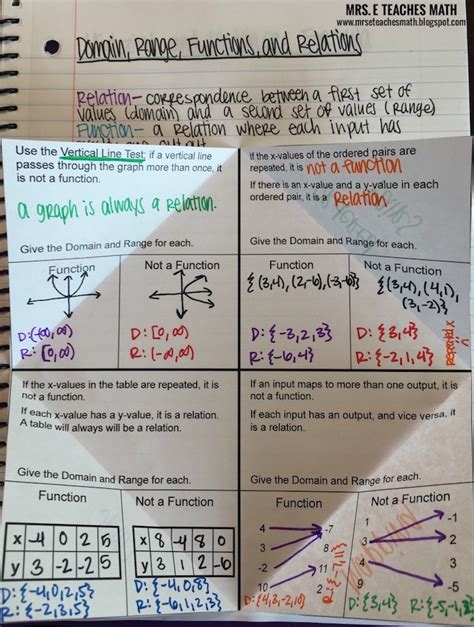 MRS. E TEACHES MATH
www.mrseteachesmath.blogspot.com
Domain, Range, Functions, and Relations
Relation - correspondence between a first set of
values (domain) and a second set of values (range)
Function - a relation where each input has
Use the Vertical Line Test; if a vertical line
passes through the graph more than once, it
is not a function.
a graph is always a relation.
Give the Domain and Range for each.
Function
Not a Function
D: (-∞, ∞)
R: [0, ∞)
D: [0, ∞)
R: (-∞, ∞)
If the x-values of the ordered pairs are
repeated, it is not a function
If there is an x-value and a y-value in each
ordered pair, it is a Relation
Give the Domain and Range for each.
Function
Not a Function
{(3,4), (2,-6), (-3,-6)}
{(3,4), (4,1),
(3,-2)}
D: {-3, 2, 3}
R: {-6, 4}
D: {3, 4}
R: {-2, 1, 4}
Repeated x
If the x-values in the table are repeated, it is
not a function.
If each x-value has a y-value, it is a relation.
A table will always will be a relation.
Give the Domain and Range for each.
Function
Not a Function
x -4 0 2 5
y 3 -2 -2 5
D: {-4, 0, 2, 5}
R: {-2, 3, 5}
x 8 -4 8 0
y 3 1 2 -6
D: {-4, 0, 8}
R: {-6, 1, 2, 3}
If an input maps to more than one output, it is
not a function.
If each input has an output, and vice versa, it
is a relation.
Give the Domain and Range for each.
Function
Not a Function
4
3
-2
10
-7
8
11
2
D: {4, 3, -2, 10}
1
3
4
9
-1
-2
3
-5
D: {3, 4}